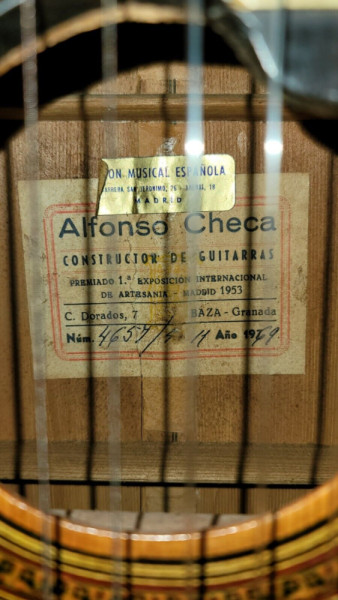 ON MUSICAL ESPAÑOLA
CARRERA SAN JERONIMO, 26 -
MADRID
Alfonso Checa
CONSTRUCTOR DE GUITARRAS
PREMIADO 1.ª EXPOSICIÓN INTERNACIONAL
DE ARTESANIA - MADRID 1953
C. Dorados, 7 BAZA - Granada
Núm. 4657/ H Año 1979